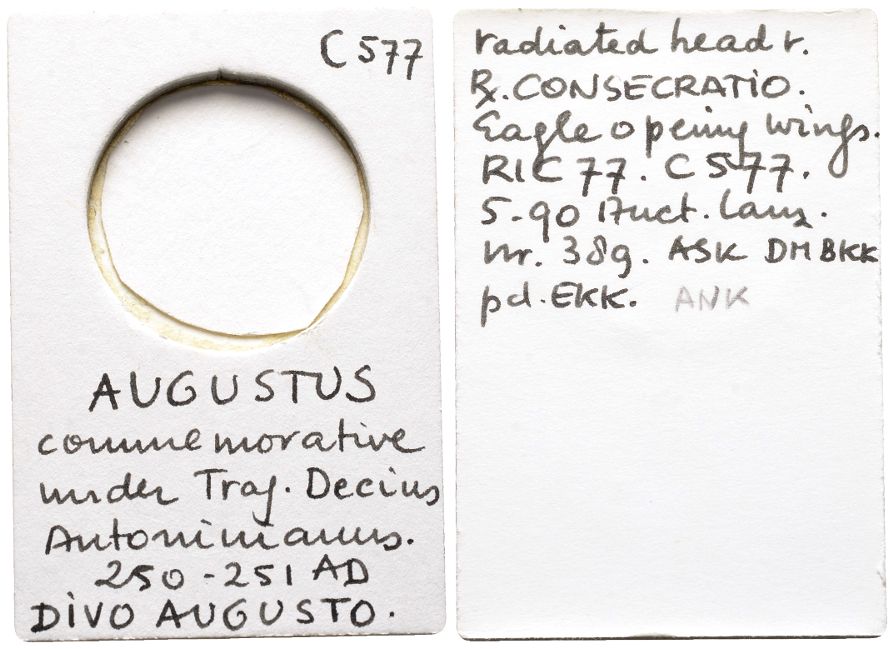 C 577
AUGUSTUS
commemorative
under Traj. Decius
Antoninianus.
250-251 AD
DIVO AUGUSTO.
radiated head r.
℞. CONSECRATIO.
Eagle opening wings.
RIC 77. C 577.
5-90 Auct. Lanz.
nr. 389. ASK DM BKK
pd. EKK. ANK